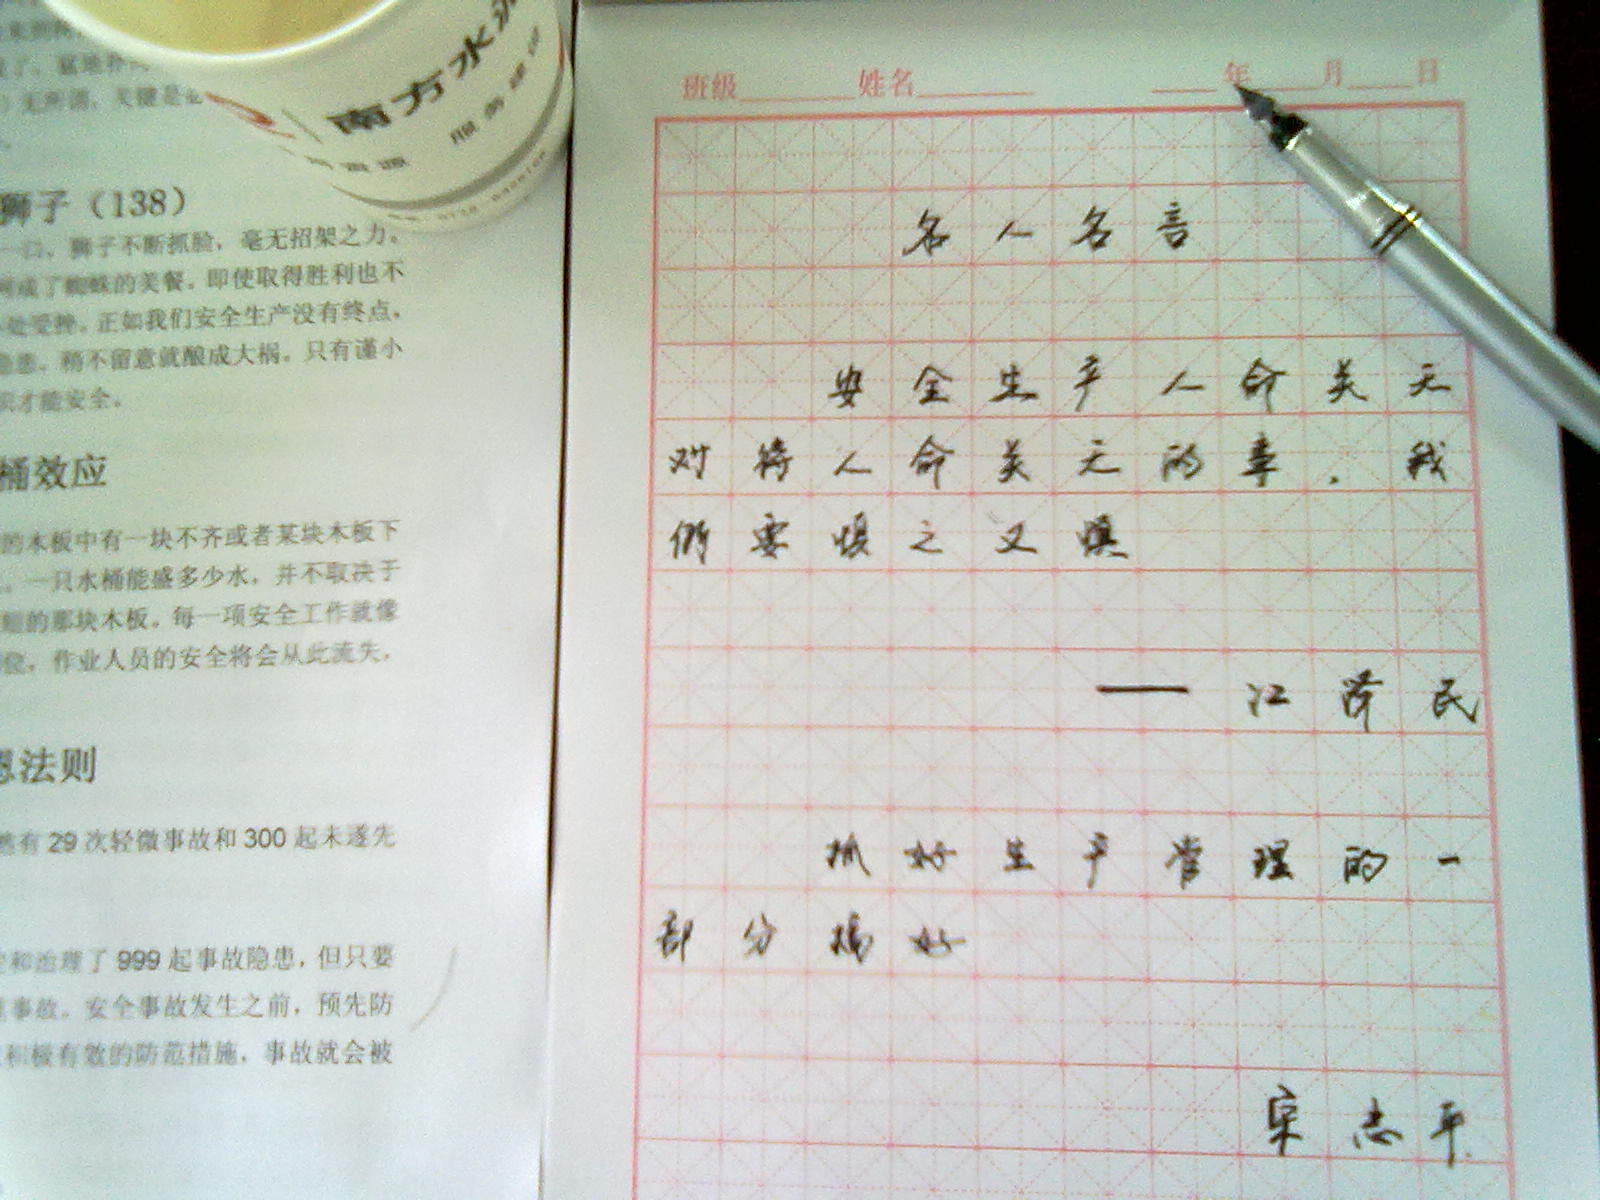 狮子（138）
一口、狮子不断抓脸，毫无招架之力。
成了蜘蛛的美餐。即使取得胜利也不
处受挫。正如我们安全生产没有终点，
患。稍不留意就酿成大祸。只有谨小
才能安全。
桶效应
的木板中有一块不齐或者某块木板下
一只水桶能盛多少水，并不取决于
短的那块木板。每一项安全工作就像
作业人员的安全将会从此流失，
法则
有 29 次轻微事故和 300 起未遂先
和治理了 999 起事故隐患，但只要
事故。安全事故发生之前，预先防
积极有效的防范措施，事故就会被
南方水
服务建设
资源
班级 姓名 年 月 日
名人名言
安全生产人命关天
对待人命关天的事，我
们要慎之又慎
——江泽民
抓好生产管理的一
部分搞好
宋志平